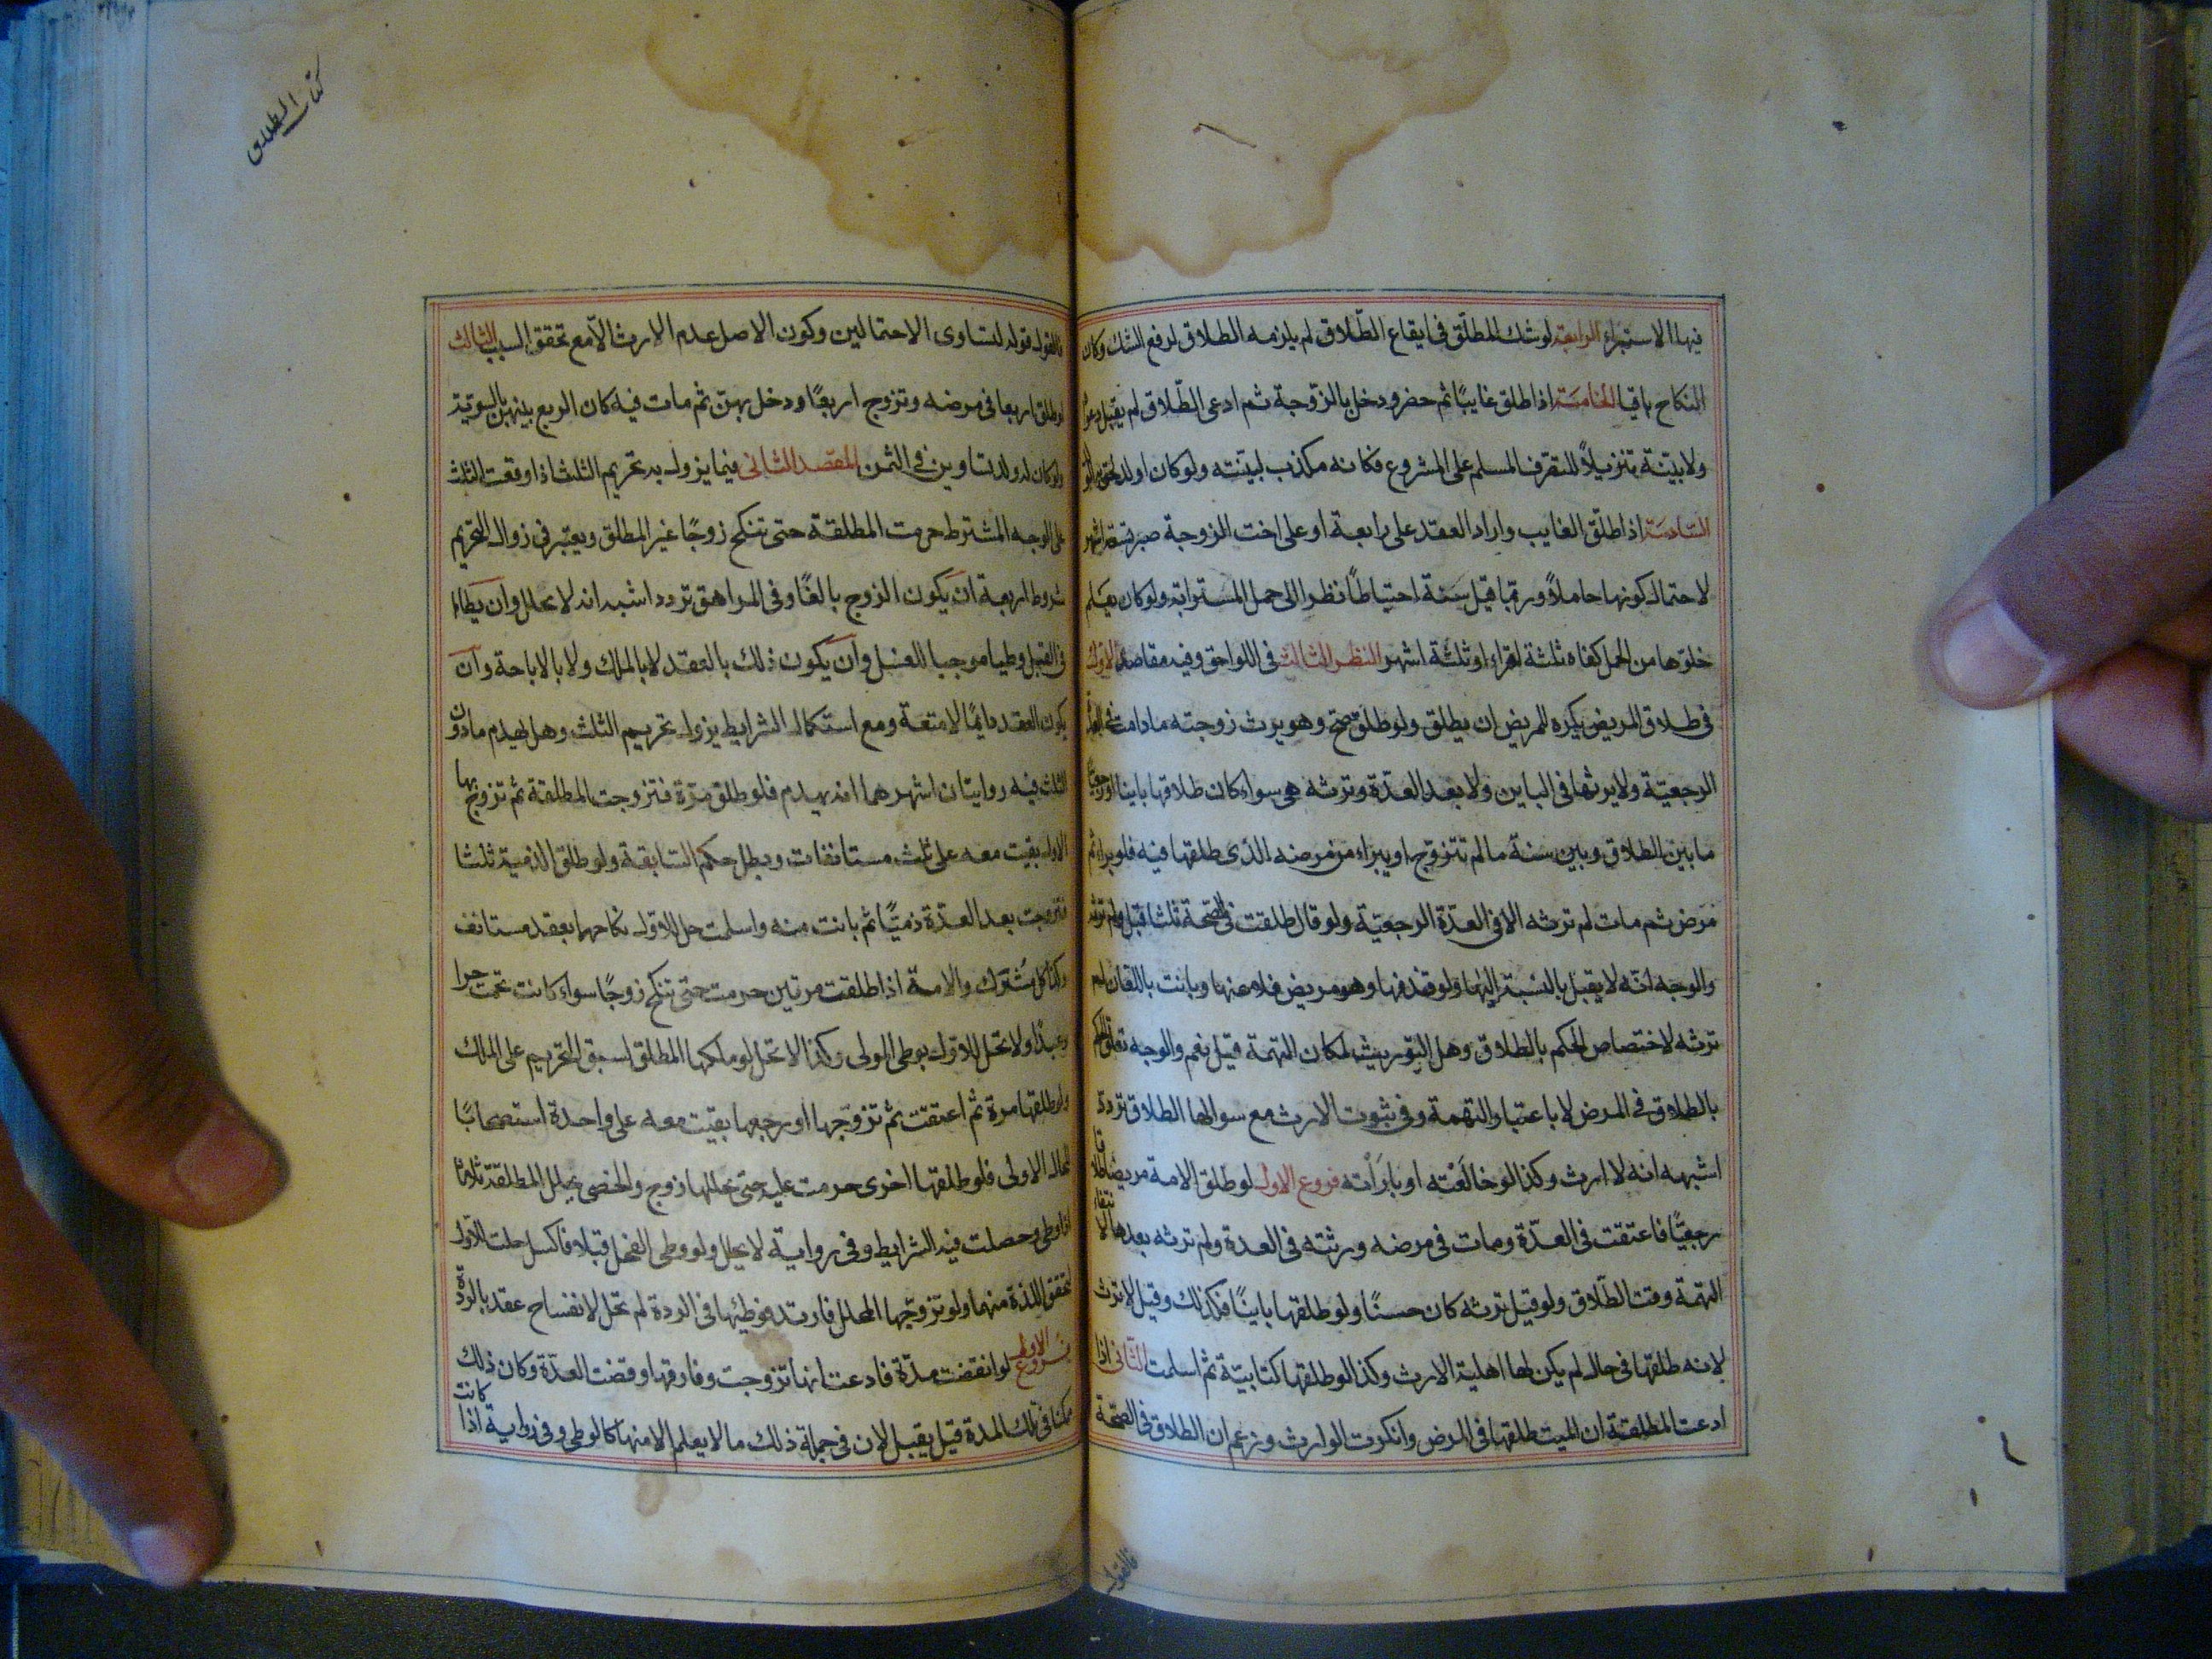 فيها الاستبراء الرابعة لو شك المطلق فى ايقاع الطلاق لم يلزمه الطلاق لرفع الشك وكان
النكاح باقيا الخامسة اذا طلق غايبا ثم حضر ودخل بالزوجة ثم ادعى الطلاق لم يقبل دعواه
ولا بينة تنزيلا لتصرف المسلم على المشروع فكانه مكذب لبينته ولو كان اولد لحق به الولد
السادسة اذا طلق الغايب واراد العقد على رابعة او على اخت الزوجة صبر تسعة اشهر
لاحتمال كونها حاملا وربما قيل سنة احتياطا نظرا الى حمل المسترابة ولو كان يعلم
خلوها من الحمل كفاه ثلثة اقراء او ثلثة اشهر النظر الثالث فى اللواحق وفيه مقاصد الاول
فى طلاق المريض يكره للمريض ان يطلق ولو طلق صح وهو يرث زوجته ما دامت فى العدة
الرجعية ولا يرثها فى الباين ولا بعد العدة وترثه هى سواء كان طلاقها باينا او رجعيا
ما بين الطلاق وبين سنة ما لم تتزوج او يبراء من مرضه الذى طلقها فيه فلو براء ثم
مرض ثم مات لم ترثه الا فى العدة الرجعية ولو قال طلقت فى الصحة ثلثا قبل ولم ترثه
والوجه انه لا يقبل بالنسبة اليها ولو قذفها وهو مريض فلاعنها وبانت باللعان لم
ترثه لاختصاص الحكم بالطلاق وهل التوريث لمكان التهمة قيل نعم والوجه تعلق الحكم
بالطلاق فى المرض لا باعتبار التهمة وفى ثبوت الارث مع سوالها الطلاق تردد
اشبهه انه لا ارث وكذا لو خالعته او بارأته فروع الاول لو طلق الامة مريضا طلاقا
رجعيا فاعتقت فى العدة ومات فى مرضه ورثته فى العدة ولم ترثه بعدها لانتفاء
التهمة وقت الطلاق ولو قيل ترثه كان حسنا ولو طلقها باينا فكذلك وقيل لا ترث
لانه طلقها فى حال لم يكن لها اهلية الارث وكذا لو طلقها كتابية ثم اسلمت الثانى اذا
ادعت المطلقة ان الميت طلقها فى المرض وانكرت الوارث وزعم ان الطلاق فى الصحة
فالقول
كتاب الطلاق
فالقول قوله لتساوى الاحتمالين وكون الاصل عدم الارث الا مع تحقق السبب الثالث
لو طلق اربعا فى مرضه وتزوج اربعا ودخل بهن ثم مات فيه كان الربع بينهن بالسوية
ولو كان له ولد تساوين فى الثمن المقصد الثانى فيما يزول به تحريم الثلث اذا وقعت الثلث
على الوجه المشترط حرمت المطلقة حتى تنكح زوجا غير المطلق ويعتبر فى زوال التحريم
شروط اربعة ان يكون الزوج بالغا وفى المراهق تردد اشبه انه لا يحلل وان يطاءا
فى القبل وطيا موجبا للغسل وان يكون ذلك بالعقد لا بالملك ولا بالاباحة وان
يكون العقد دايما لا متعة ومع استكمال الشرايط يزول تحريم الثلث وهل يهدم ما دون
الثلث فيه روايتان اشهرهما انه يهدم فلو طلق مرة فتزوجت المطلقة ثم تزوج بها
الاول بقيت معه على ثلث مستانفات وبطل حكم السابقة ولو طلق الذمية ثلثا
فتزوجت بعد العدة ذميا ثم بانت منه واسلمت حل للاول نكاحها بعقد مستانف
وكذا كل مشرك والامة اذا طلقت مرتين حرمت حتى تنكح زوجا سواء كانت تحت حرا
وعبدا ولا تحل للاول بوطى المولى وكذا لا تحل لو ملكها المطلق لسبق التحريم على الملك
ولو طلقها مرة ثم اعتقت ثم تزوجها او رجعها بقيت معه على واحدة استصحابا
للحال الاولى فلو طلقها اخرى حرمت عليه حتى يحللها زوج والخصى يحلل المطلقة ثلاثا
اذا وطى وحصلت فيه الشرايط وفى رواية لا يحلل ولو وطى الفحل قبلا فاكسل حلت للاول
لتحقق اللذة منهما ولو تزوجها المحلل فارتد فوطئها فى الردة لم تحل لانفساح عقده بالردة
فروع الاول لو انقضت مدة فادعت انها تزوجت وفارقها وقضت العدة وكان ذلك
ممكنا فى تلك المدة قيل يقبل لان فى جملة ذلك ما لا يعلم الا منها كالوطى وفى رواية اذا كانت